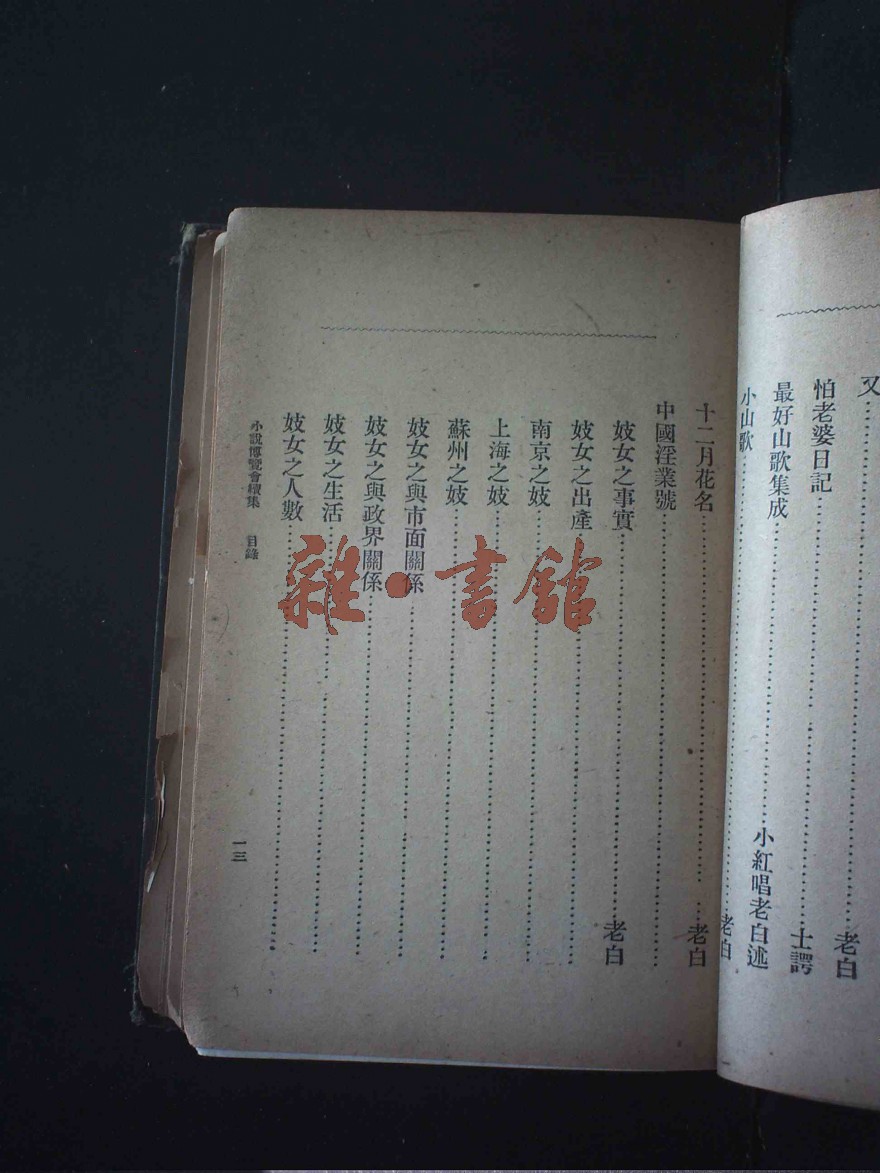 又……老白
怕老婆日記……士諤
最好山歌集成……小紅唱老白述
小山歌……老白
十二月花名……老白
中國淫業號……
妓女之事實……老白
妓女之出產……
南京之妓……
上海之妓……
蘇州之妓……
妓女之與市面關係……
妓女之與政界關係……
妓女之生活……
妓女之人數……
小說博覽會續集 目錄 一三
雜·書館